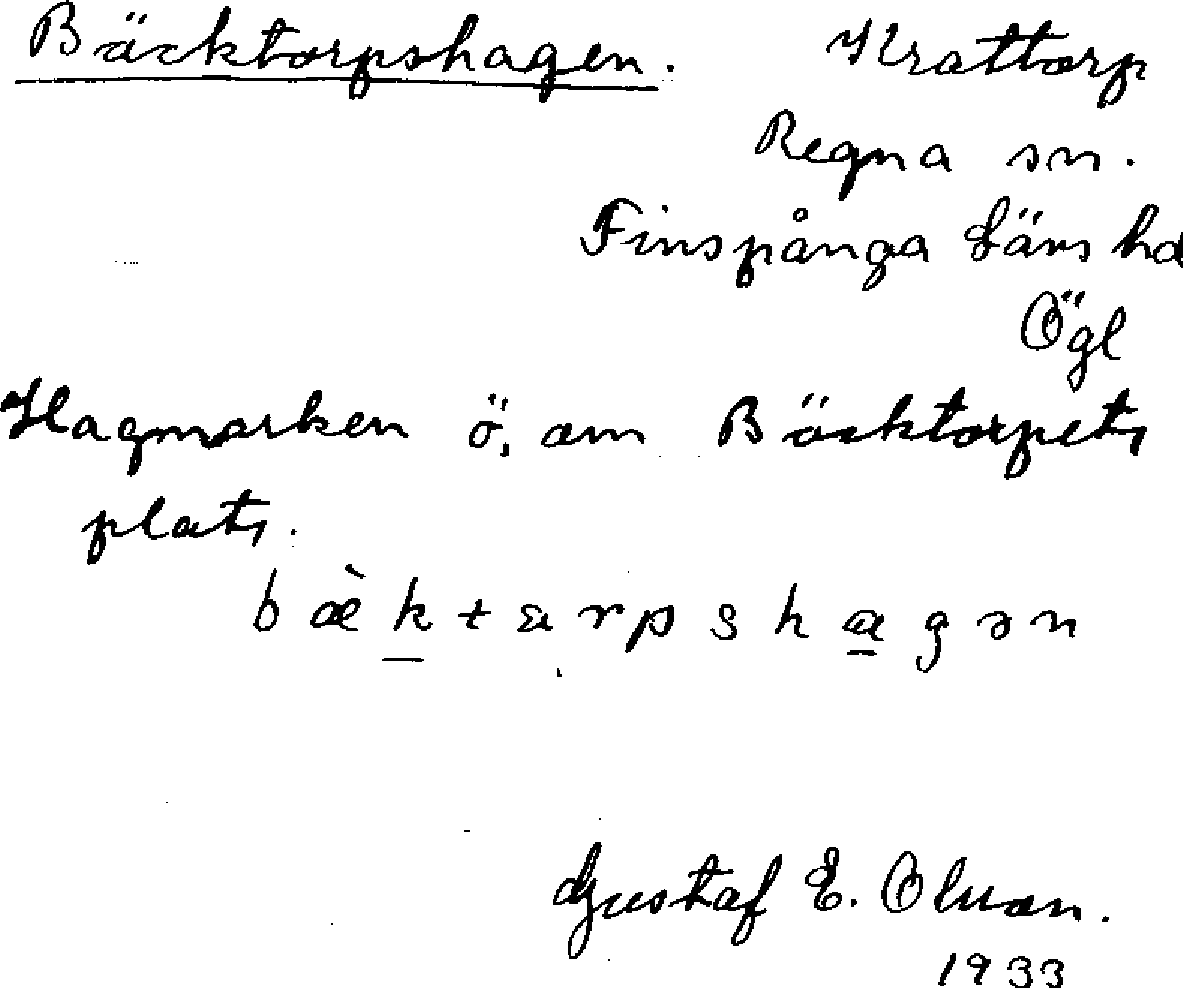 Bäcktorpshagen. Krattorp
Regna sn.
Finspånga läns hd
Ögl
Hagmarken ö. om Bäcktorpets
plats.
bæ̀k̲tɷrpsha̲gən
Gustaf E. Olsson.
1933